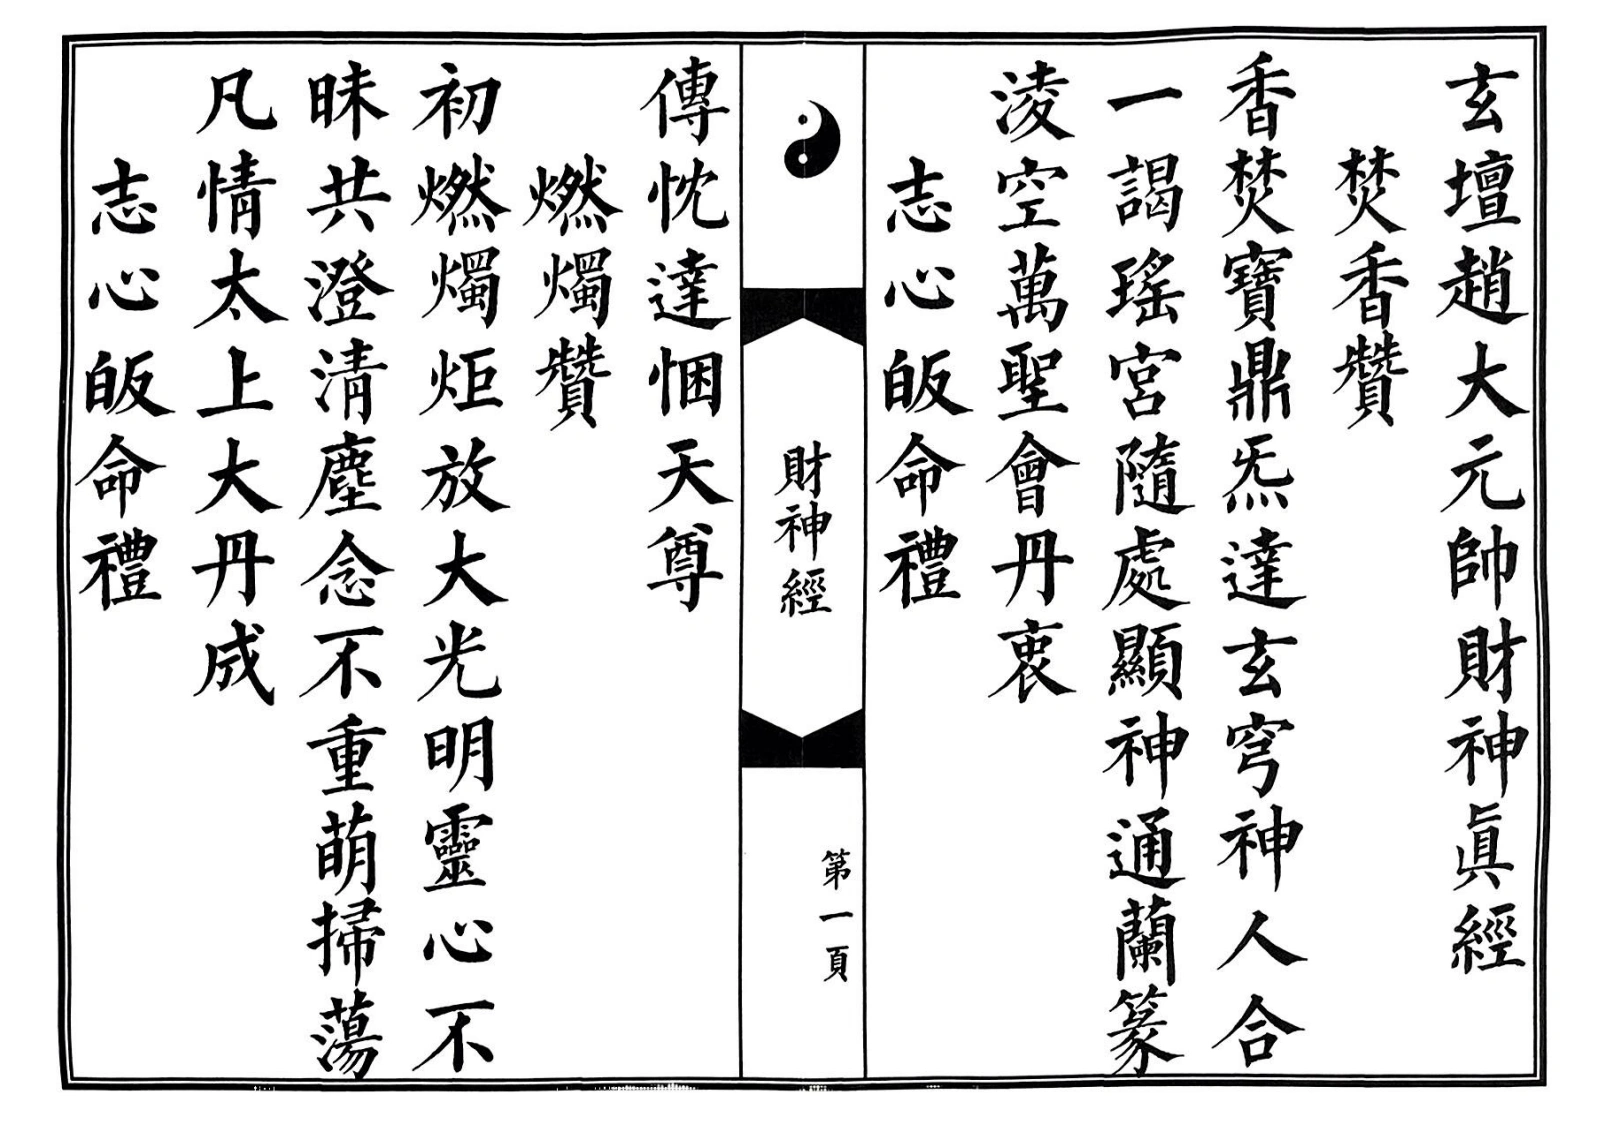 玄壇趙大元帥財神眞經
焚香贊
香焚寶鼎炁達玄穹神人合
一謁瑤宮隨處顯神通蘭篆
淩空萬聖會丹衷
志心皈命禮
財神經
第一頁
傳忱達悃天尊
燃燭贊
初燃燭炬放大光明靈心不
昧共澄清塵念不重萌掃蕩
凡情太上大丹成
志心皈命禮